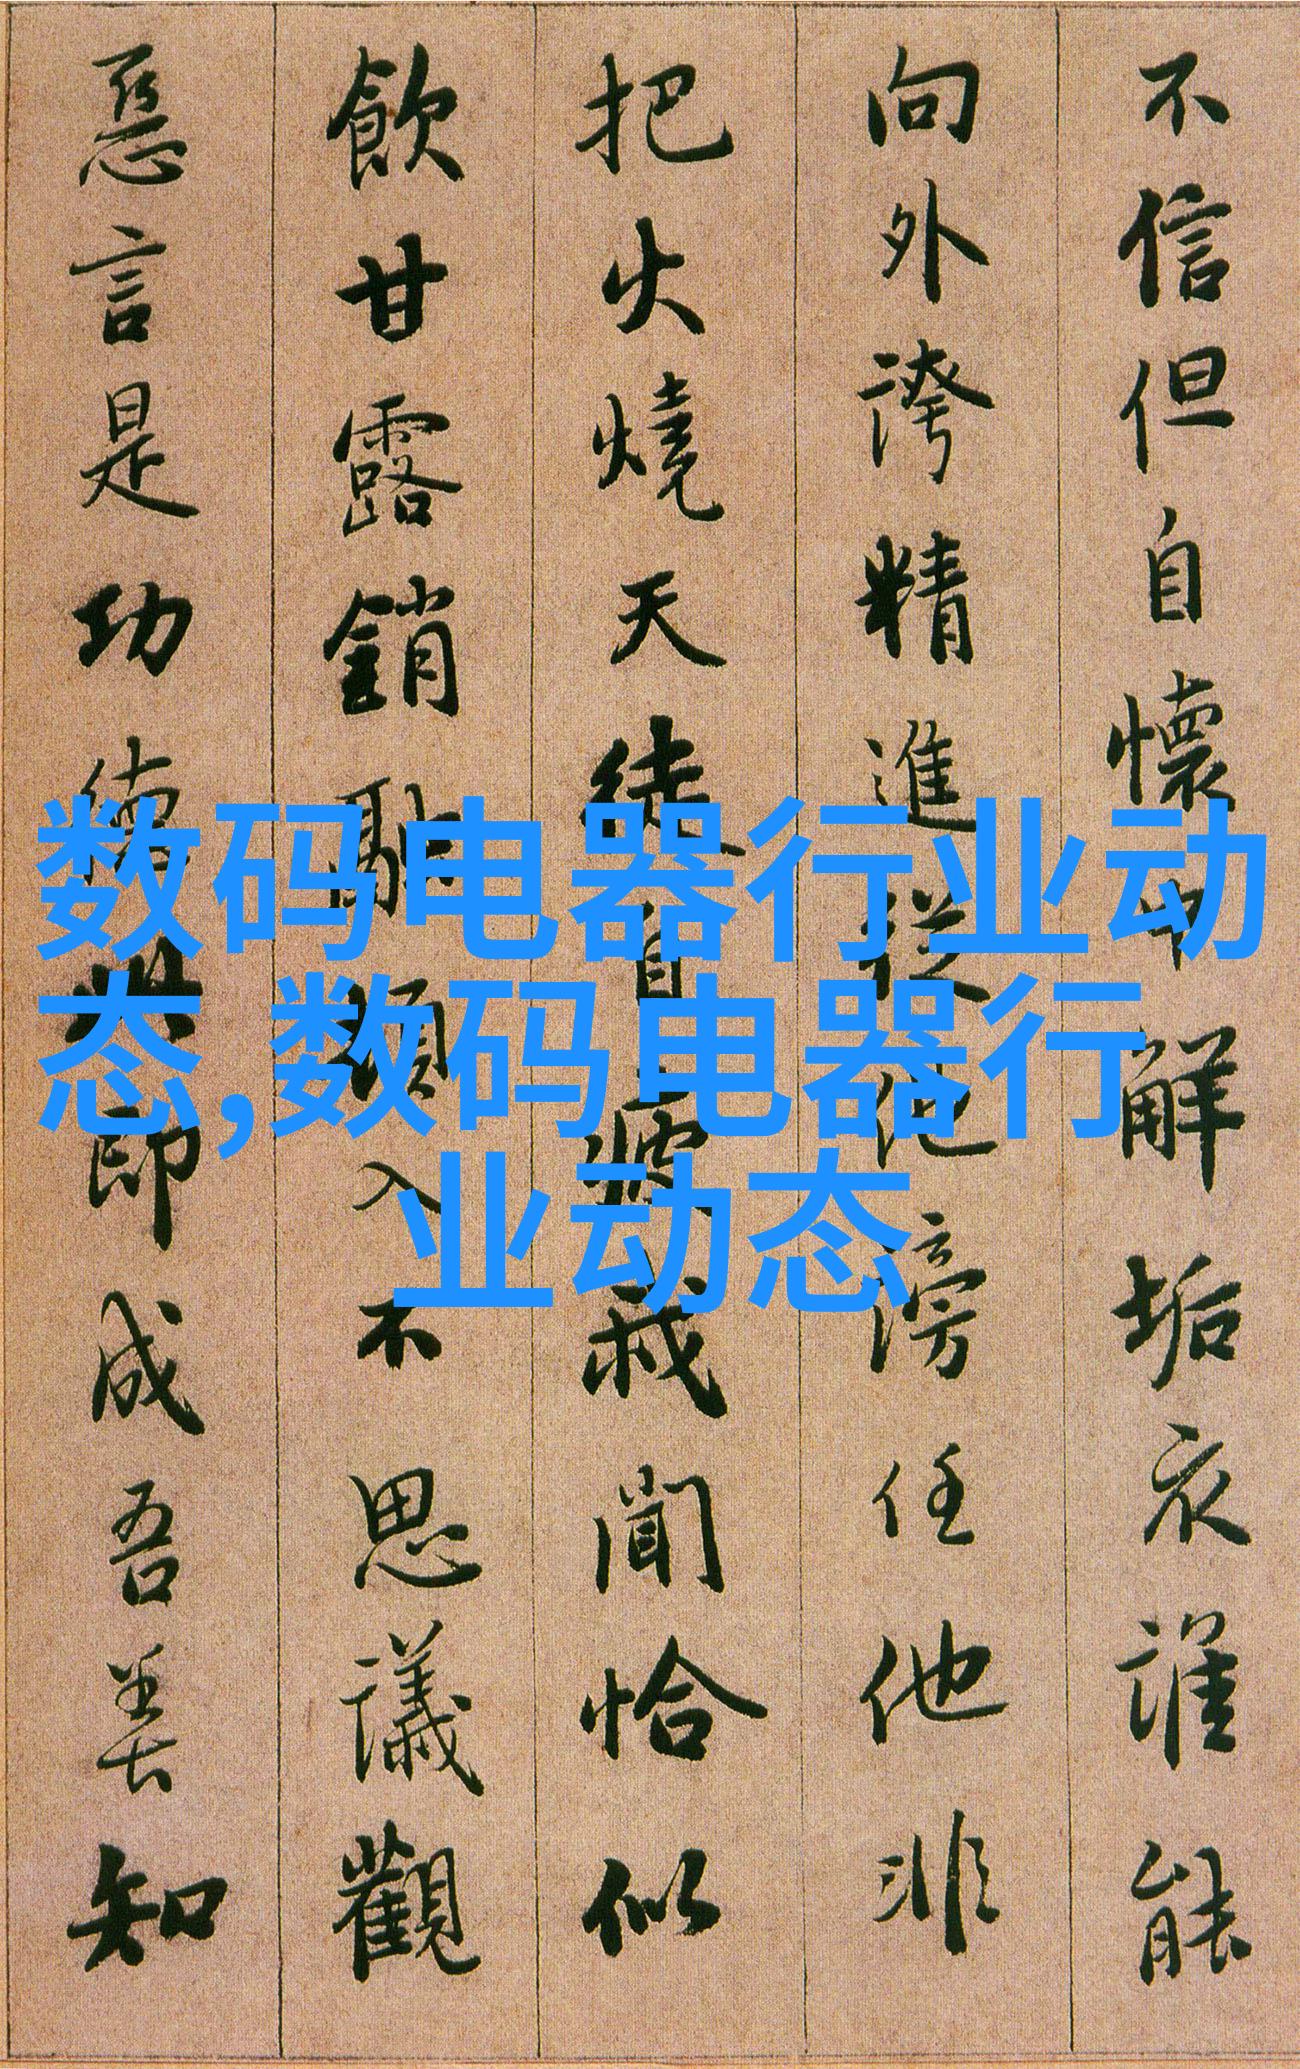 不信但自懷中解垢衣誰能
向外誇精進從他謗任他非
把火燒天徒自疲我聞恰似
飲甘露銷融頓入不思議觀
惡言是功德即成吾善知
数码电器行业动
态,数码电器行
业动态